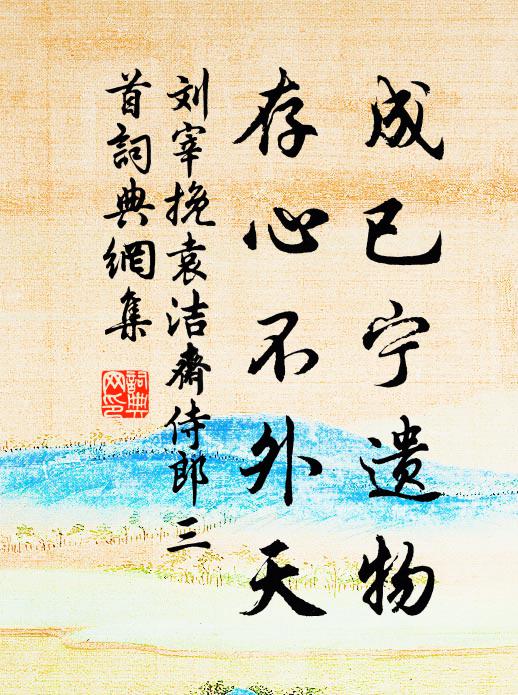 成已宁遗物
存心不外天
刘宰挽袁洁斋侍郎三
首詞典網集
詞典
网印